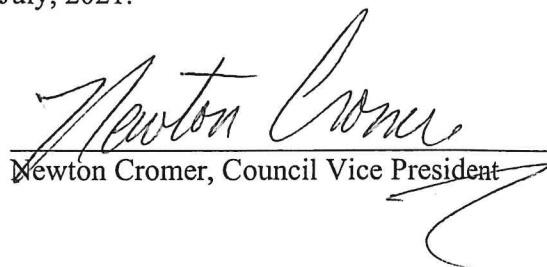 July, 2021.
Newton Cromer
Newton Cromer, Council Vice President